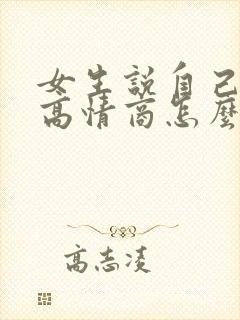 女生说自己
高情商怎麼
高志凌